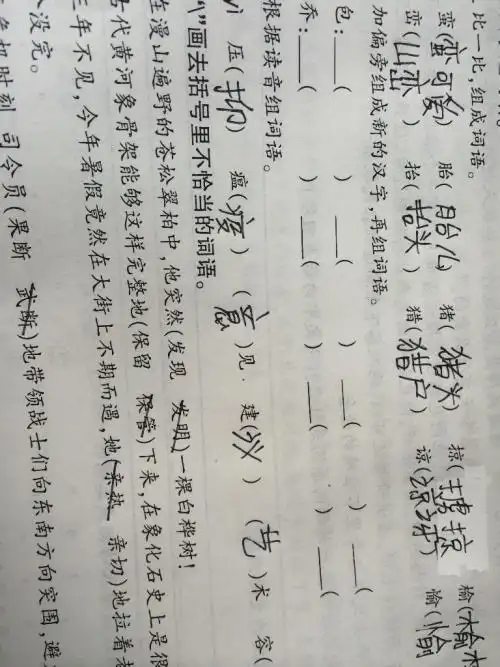 比一比,组成词语。
蛮(蛮可爱) 胎(胎儿) 猪(猪头) 掠(掳掠) 榆(榆木
峦(山峦) 抬(抬头) 猎(猎户) 谅( ) 愉(愉
加偏旁组成新的汉字,再组词语。
包:___( ) ___( ) ___( ) ___(
乔:___( ) ___( ) ___( ) ___(
根据读音组词语。
yì 压(抑) 瘟(疫) (意)见 建(议) (艺)术 容(
"\"画去括号里不恰当的词语。
在漫山遍野的苍松翠柏中,他突然(发现 发明)一棵白桦树!
古代黄河象骨架能够这样完整地(保留 保管)下来,在象化石史上是很
三年不见,今年暑假竟然在大街上不期而遇,她(亲热 亲切)地拉着
没完。
机时刻,司令员(果断 武断)地带领战士们向东南方向突围,避